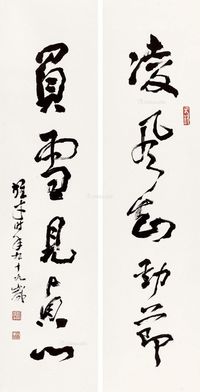 凌风知劲节
负雪见贞心
时年九十九岁